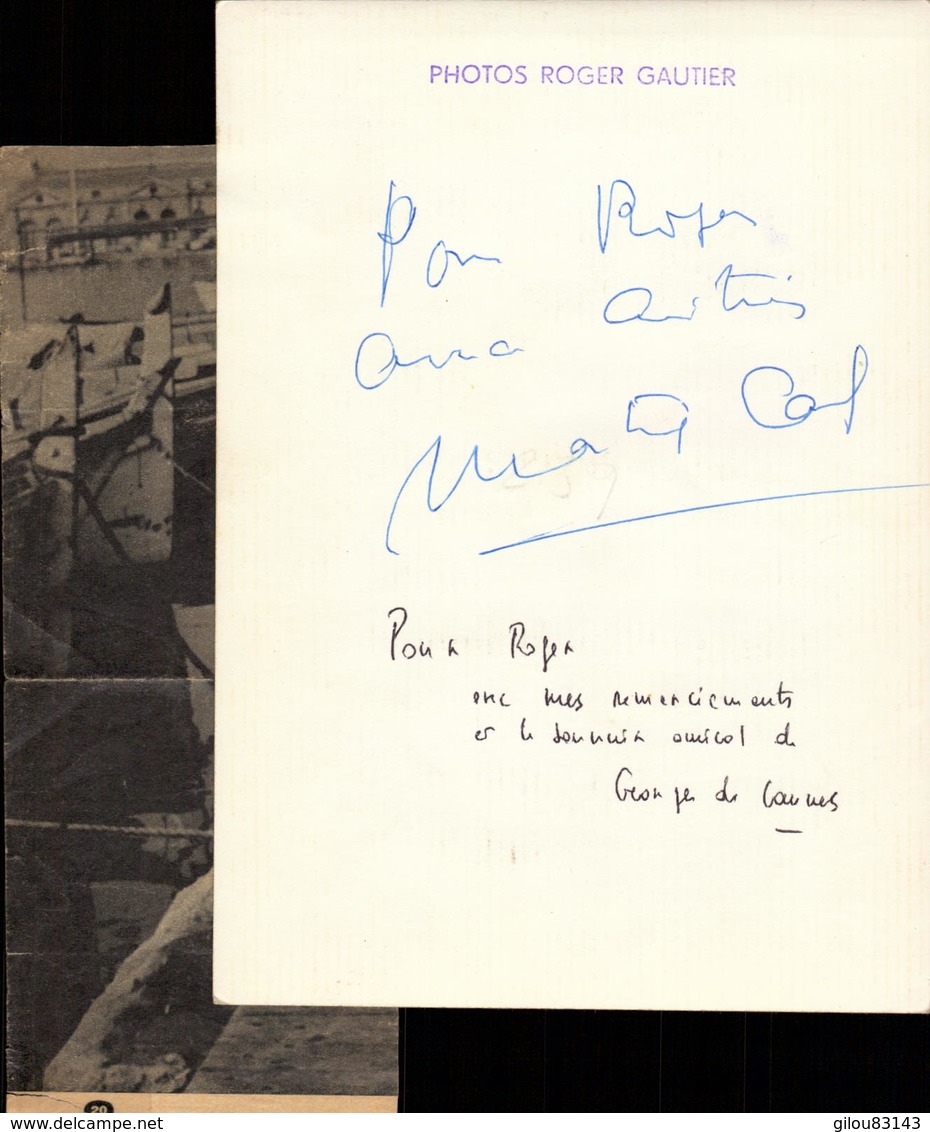 PHOTOS ROGER GAUTIER
Pour Roger
avec amitiés
Pour Roger
avec mes remerciements
et le souvenir amical de
Georges de Cannes
20
www.delcampe.net
gilou83143